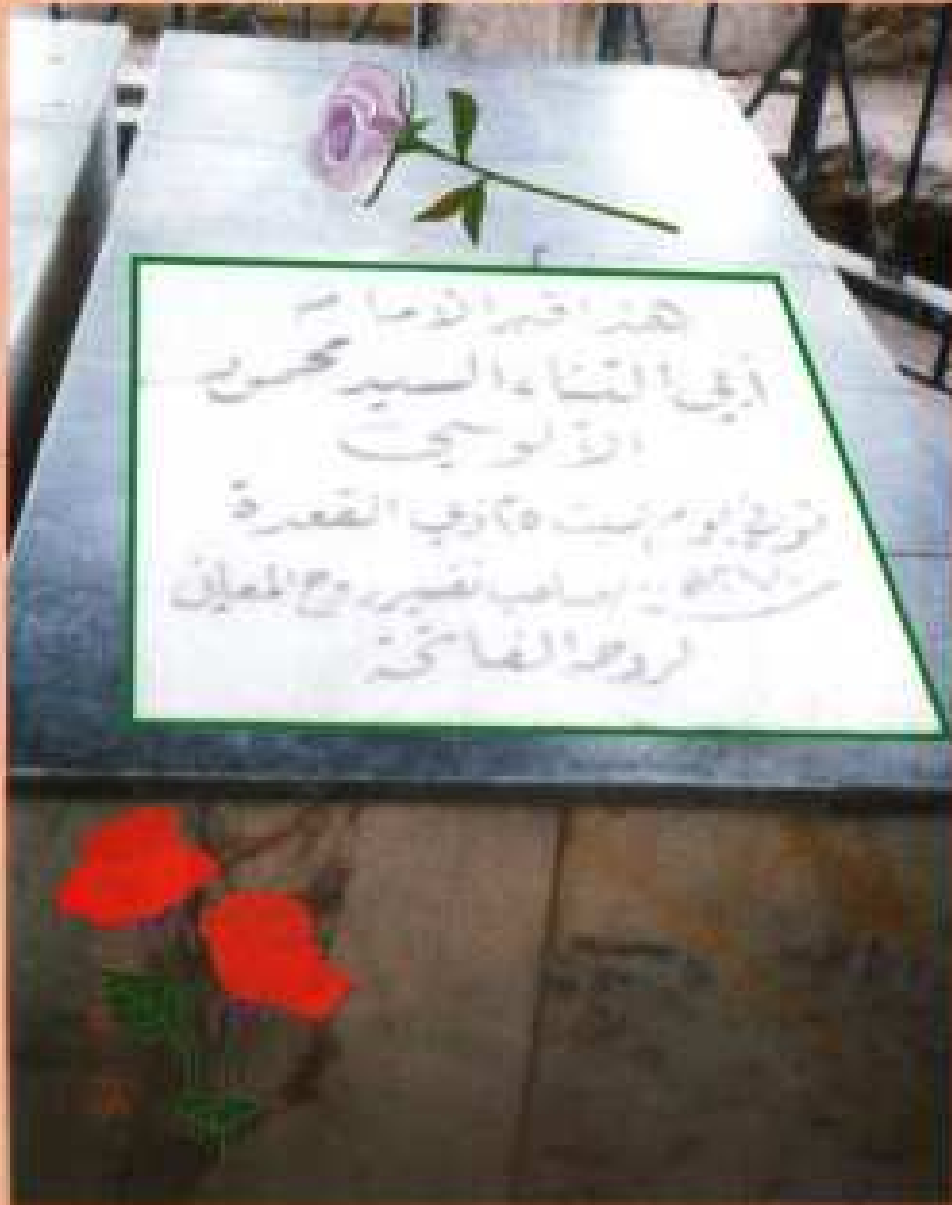 هذا قبر الامام
أبي الثناء السيد محمود
الآلوسي
توفي يوم ٢٥ ذي القعدة
١٢٧٠هـ صاحب تفسير روح المعاني
لروحه الفاتحة